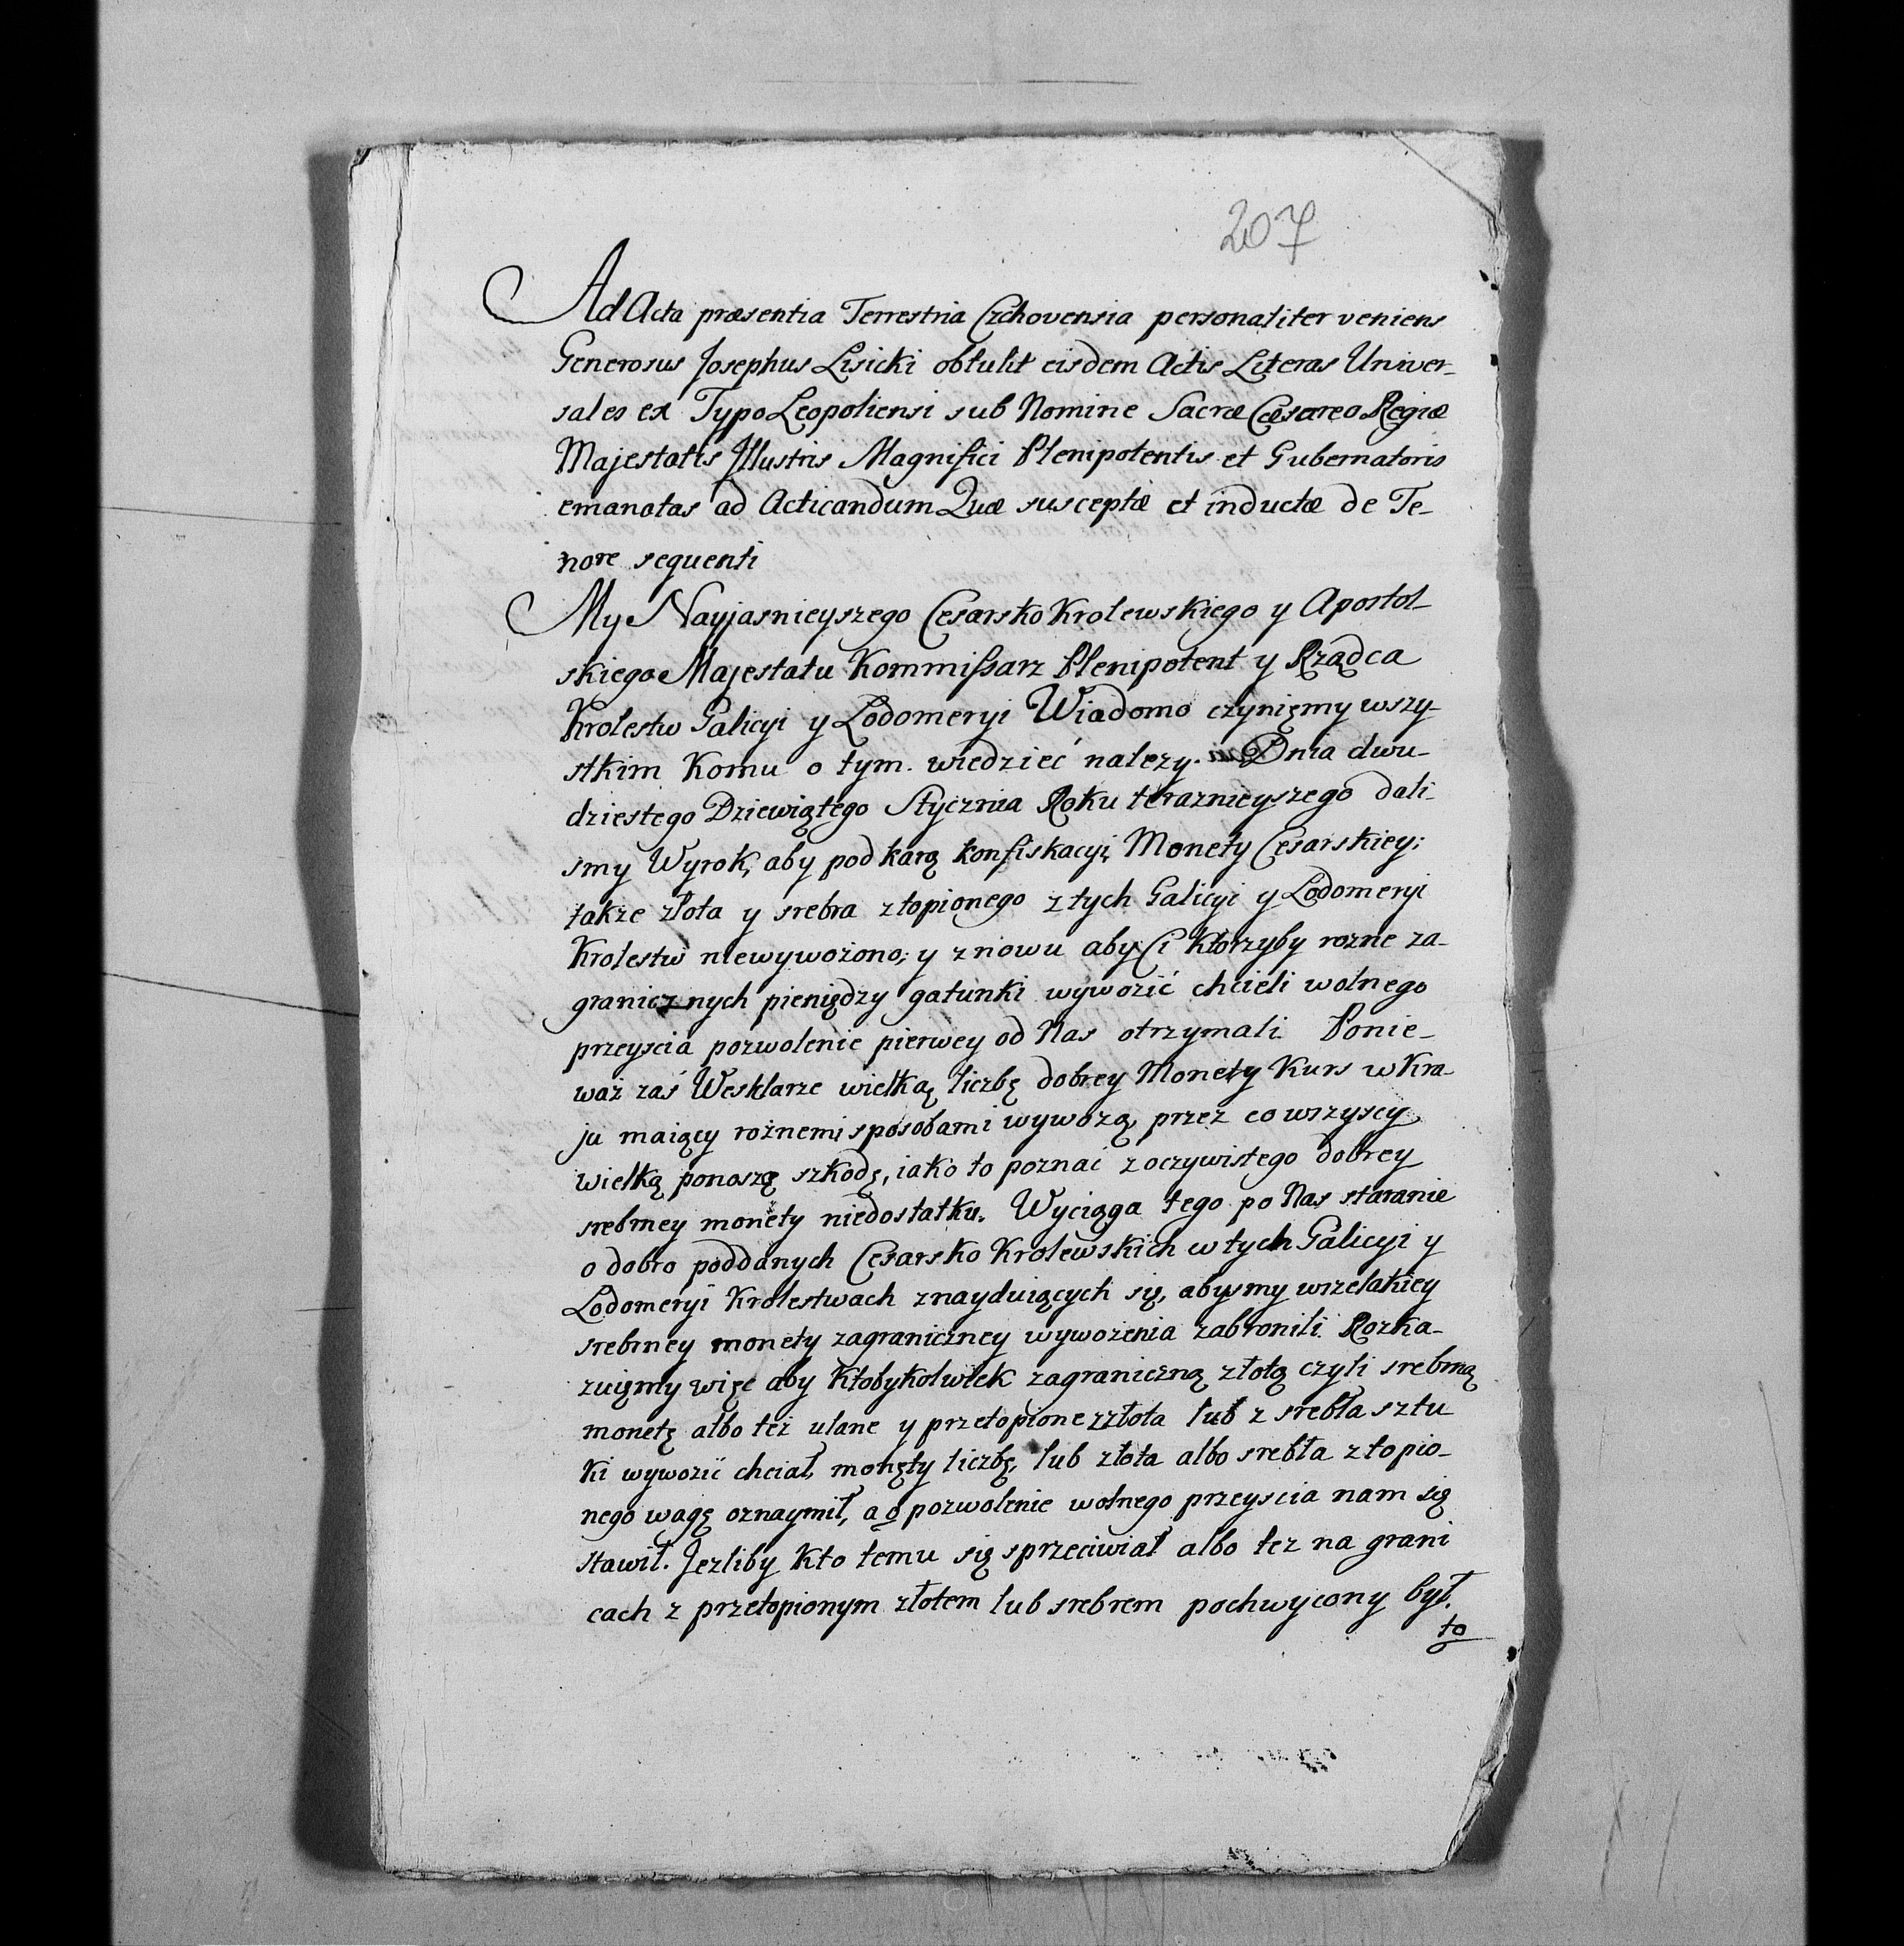 207
Ad Acta præsentia Terrestria Czchovensia personaliter veniens
Generosus Josephus Lisicki obtulit eisdem Actis Literas Univer-
sales ex Typo Leopoliensi sub Nomine Sacræ Cæsareo Regiæ
Majestatis Jllustris Magnifici Plenipotentis et Gubernatoris
emanatas ad Acticandum Quæ susceptæ et inductæ de Te-
nore sequenti
My Nayjasnieyszego Cesarsko Krolewskiego y Apostol-
skiego Majestatu Kommißarz Plenipotent y Rządca
Krolestw Galicyi y Lodomeryi Wiadomo czynięmy wszy-
stkim Komu o tym. wiedzieć nalezy. Dnia dwu-
dziestego Dziewiątego Stycznia Roku teraznieyszego dali-
smy Wyrok, aby pod karą konfiskacyi, Monety Cesarskiey;
takze złota y srebra ztopionego z tych Galicyi y Lodomeryi
Krolestw niewywożono; y znowu aby Ci Ktorzyby rozne za-
granicznych pieniędzy gatunki wywozić chcieli wolnego
przeyscia pozwolenie pierwey od Nas otrzymali. Ponie-
waż zaś Wesklarze wielką liczbę dobrey Monety Kurs w Kra-
ju maiący rożnemi sposobami wywożą, przez co wszyscy
wielką ponoszą szkodę, iako to poznać z oczywistego dobrey
srebrney monety niedostatku. Wyciąga tego po Nas staranie
o dobro poddanych Cesarsko Krolewskich w tych Galicyi y
Lodomeryi Krolestwach znayduiących się, abysmy wszelakiey
srebrney monety zagraniczney wywożenia zabronili. Rozka-
zuięmy więc aby Ktobykolwiek zagraniczną złotą czyli srebrną
monetę albo też ulane y przetopione zzłota lub z srebła sztu
ki wywozić chciał, monęty liczbę, lub złota albo srebła ztopio-
nego wagę oznaymił, a o pozwolenie wolnego przeyscia nam się
stawił. Jezliby Kto temu się sprzeciwiał albo tez na grani
cach z przetopionym złotem lub srebrem pochwycony był.
to